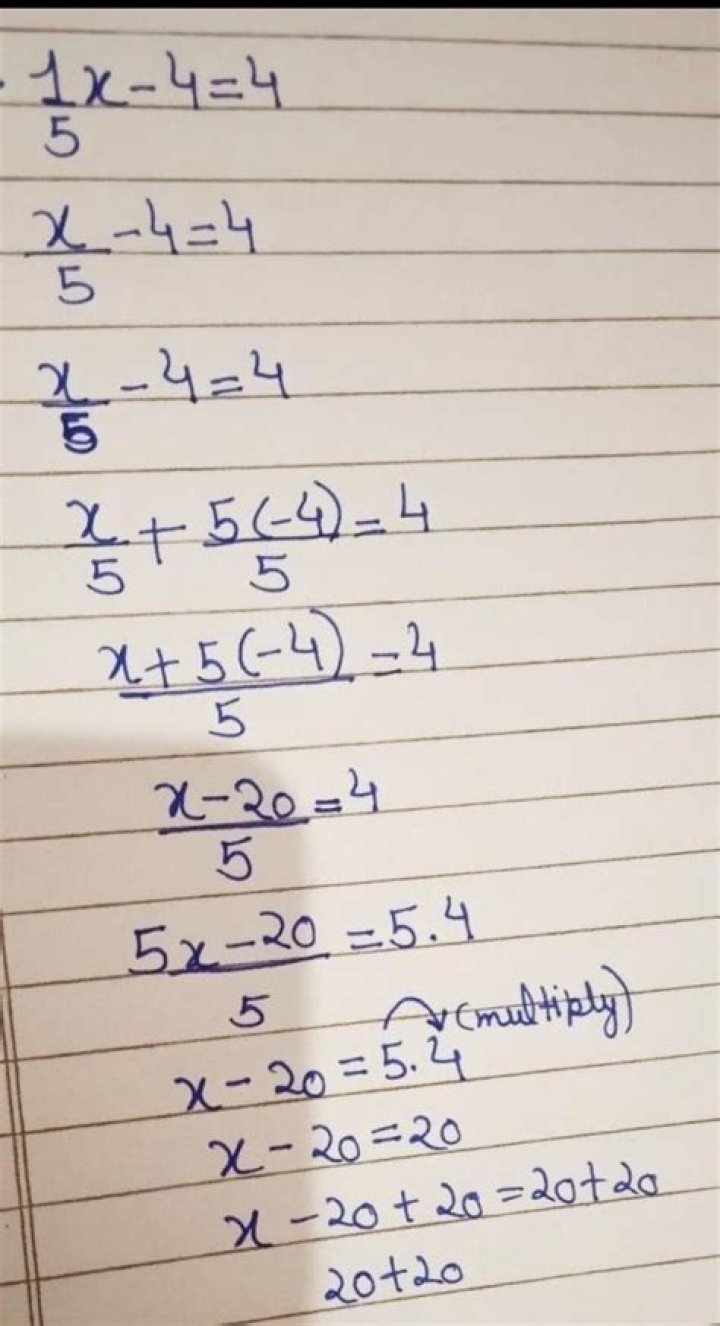 1/5 x - 4 = 4
x/5 - 4 = 4
x/5 - 4 = 4
x/5 + 5(-4)/5 = 4
x + 5(-4)/5 = 4
x - 20/5 = 4
5x - 20/5 = 5.4
(multiply)
x - 20 = 5.4
x - 20 = 20
x - 20 + 20 = 20 + 20
20 + 20